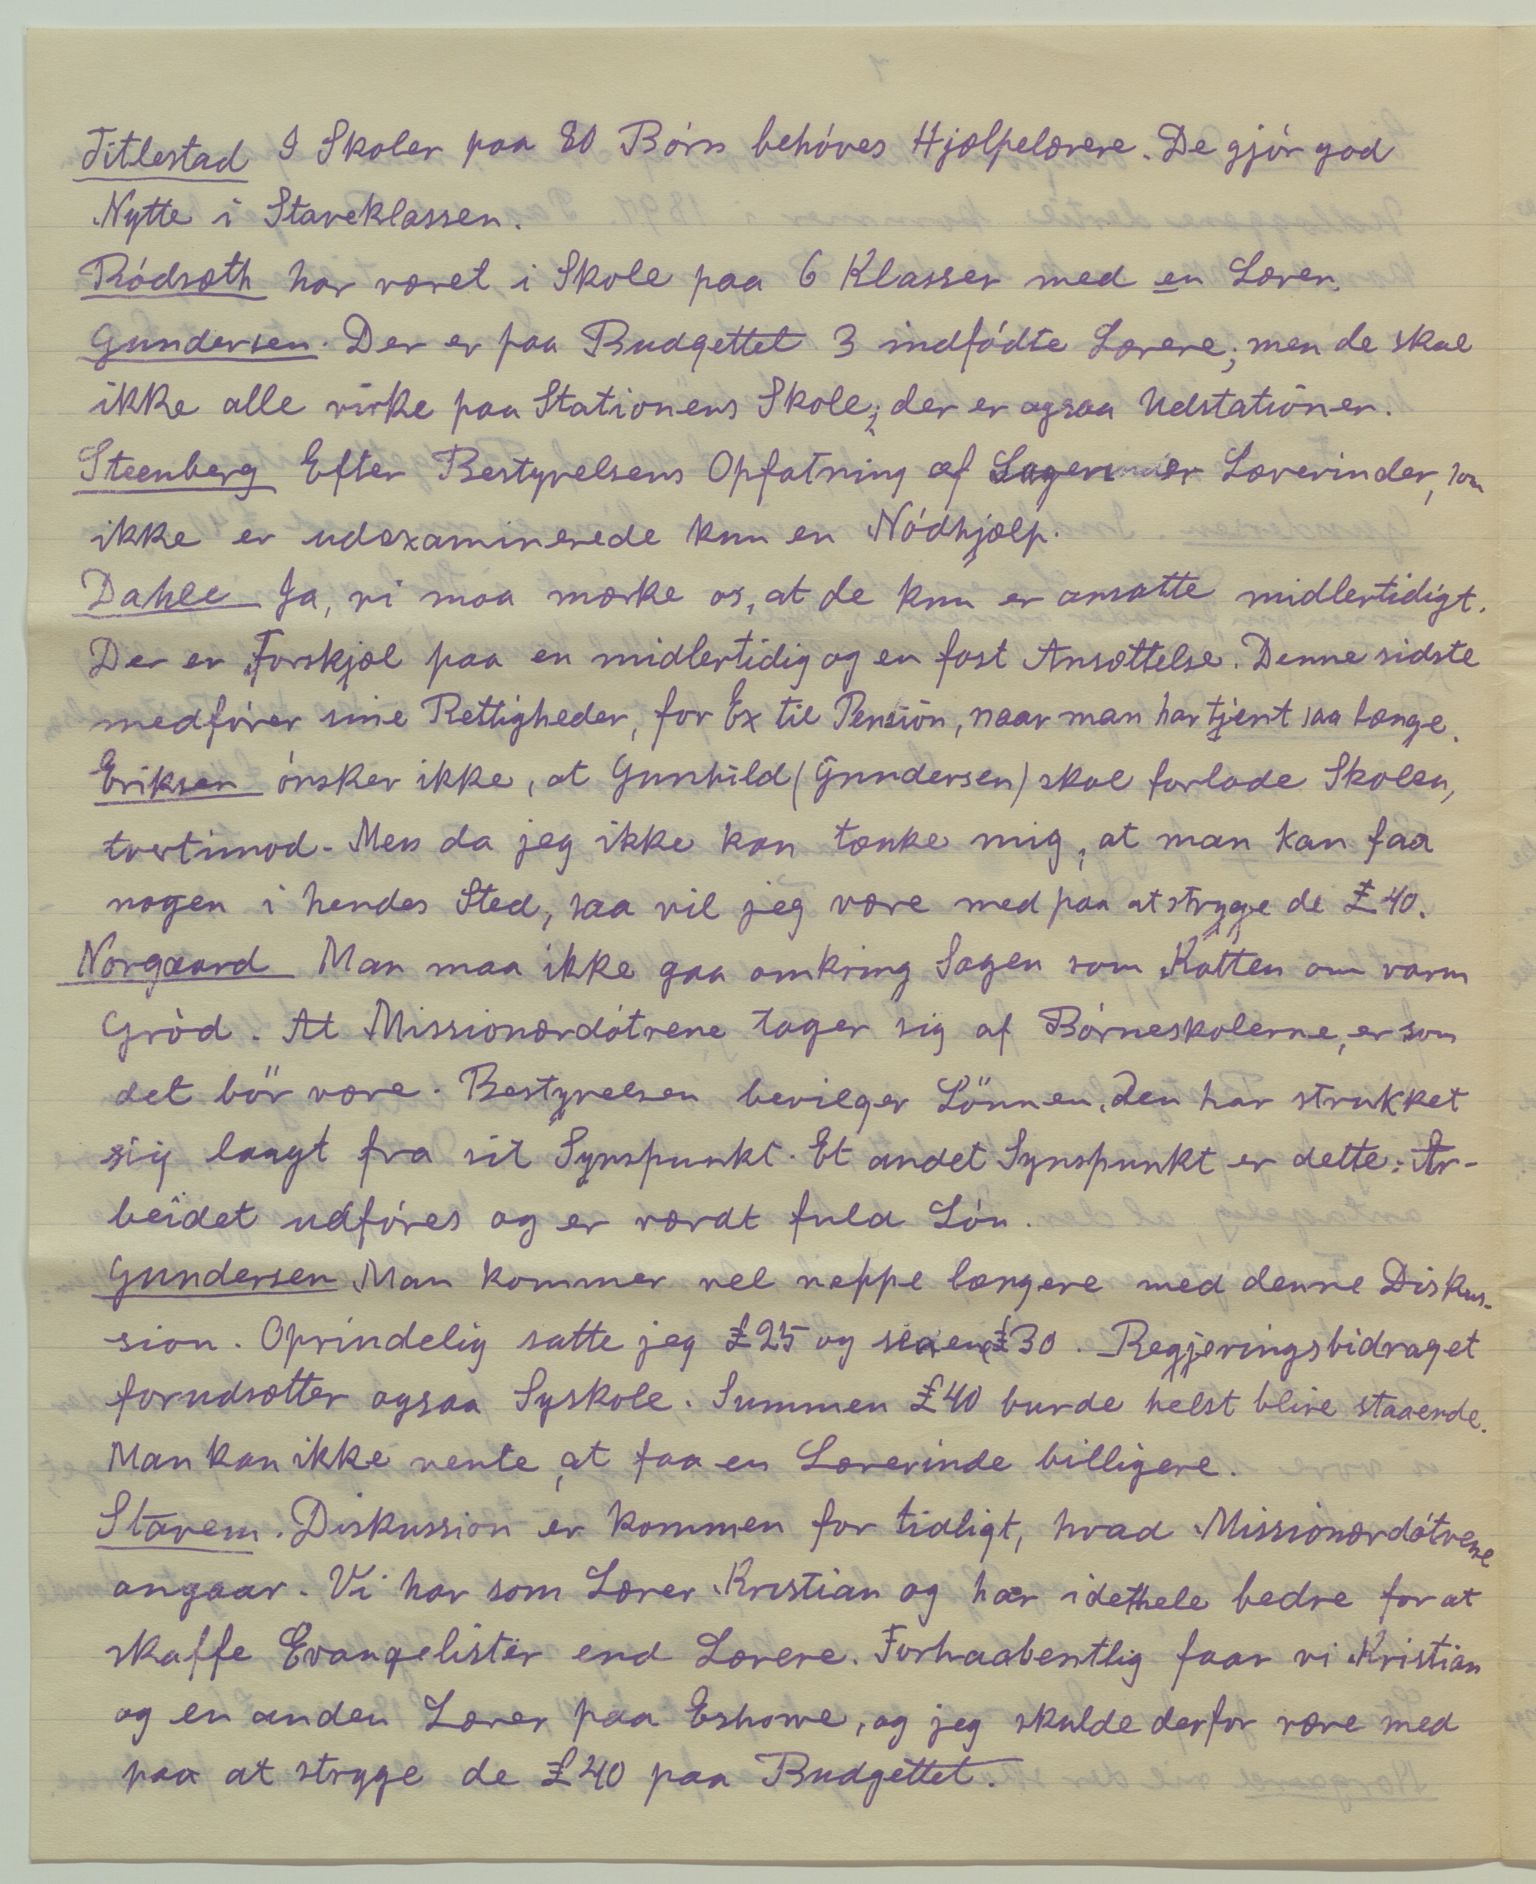 Titlestad I Skoler paa 80 Børn behøves Hjælpelærere. De gjør god
Nytte i Staveklassen.
Rødsæth har været i Skole paa 6 Klasser med en Lærer.
Gundersen. Der er paa Budgettet 3 indfødte Lærere; men de skal
ikke alle virke paa Stationens Skole; der er ogsaa Udstationer.
Steenberg Efter Bestyrelsens Opfatning af Sagen er Lærerinder, som
ikke er udexaminerede kun en Nødhjælp.
Dahle Ja, vi maa mærke os, at de kun er ansatte midlertidigt.
Der er Forskjæl paa en midlertidig og en fast Ansættelse. Denne sidste
medfører sine Rettigheder, for Ex til Pension, naar man har tjent saa længe.
Eriksen ønsker ikke, at Gunhild (Gundersen) skal forlade Skolen,
tvertimod. Men da jeg ikke kan tænke mig, at man kan faa
nogen i hendes Sted, saa vil jeg være med paa at stryge de £40.
Norgaard Man maa ikke gaa omkring Sagen som Katten om varm
Grød. At Missionærdøtrene tager sig af Børneskolerne, er som
det bör være. Bestyrelsen bevilger Lönnen. Den har strukket
sig langt fra sit Synspunkt. Et andet Synspunkt er dette: Ar-
beidet udføres og er værdt fuld Løn.
Gundersen Man kommer vel neppe længere med denne Diskus-
sion. Oprindelig satte jeg £25 og siden £30. Regjeringsbidraget
forudsætter ogsaa Syskole. Summen £40 burde helst blive staaende.
Man kan ikke vente at faa en Lærerinde billigere.
Stavem. Diskussion er kommen for tidligt, hvad Missionærdøtrene
angaar. Vi har som Lærer Kristian og har idethele bedre for at
skaffe Evangelister end Lærere. Forhaabentlig faar vi Kristian
og en anden Lærer paa Eshowe, og jeg skulde derfor være med
paa at stryge de £40 paa Budgettet.